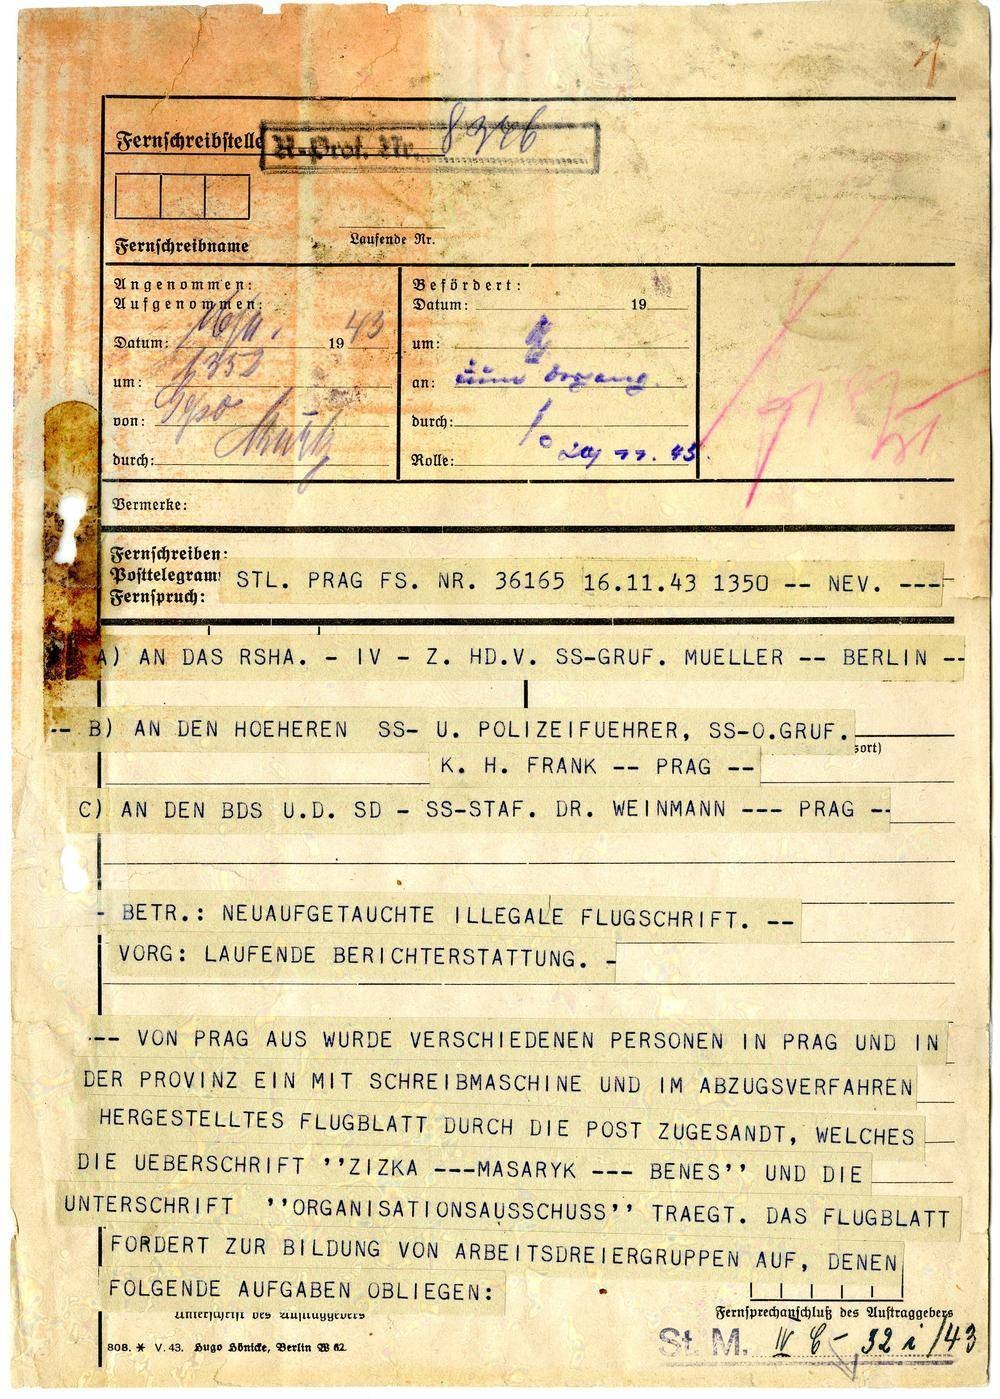 Fernschreibstelle
K-Prot. Nr. 8346
Fernschreibname
Laufende Nr.
Angenommen:
Aufgenommen:
Datum: 19 43
um: 1352
von:
durch:
Befördert:
Datum: 19
um:
an:
durch:
Rolle:
Vermerke:
Fernschreiben:
Posttelegramm
Fernspruch:
STL. PRAG FS. NR. 36165 16.11.43 1350 -- NEV. ---
A) AN DAS RSHA. - IV - Z. HD.V. SS-GRUF. MUELLER -- BERLIN --
-- B) AN DEN HOEHEREN SS- U. POLIZEIFUEHRER, SS-O.GRUF.
K. H. FRANK -- PRAG --
C) AN DEN BDS U.D. SD - SS-STAF. DR. WEINMANN --- PRAG --
- BETR.: NEUAUFGETAUCHTE ILLEGALE FLUGSCHRIFT. --
VORG: LAUFENDE BERICHTERSTATTUNG. -
--- VON PRAG AUS WURDE VERSCHIEDENEN PERSONEN IN PRAG UND IN
DER PROVINZ EIN MIT SCHREIBMASCHINE UND IM ABZUGSVERFAHREN
HERGESTELLTES FLUGBLATT DURCH DIE POST ZUGESANDT, WELCHES
DIE UEBERSCHRIFT ''ZIZKA ---MASARYK --- BENES'' UND DIE
UNTERSCHRIFT ''ORGANISATIONSAUSSCHUSS'' TRAEGT. DAS FLUGBLATT
FORDERT ZUR BILDUNG VON ARBEITSDREIERGRUPPEN AUF, DENEN
FOLGENDE AUFGABEN OBLIEGEN:
Unterschrift des Auftraggebers
Fernsprechanschluß des Auftraggebers
808. * V. 43. Hugo Hönicke, Berlin W 62.
St. M. IV C - 32 i /43